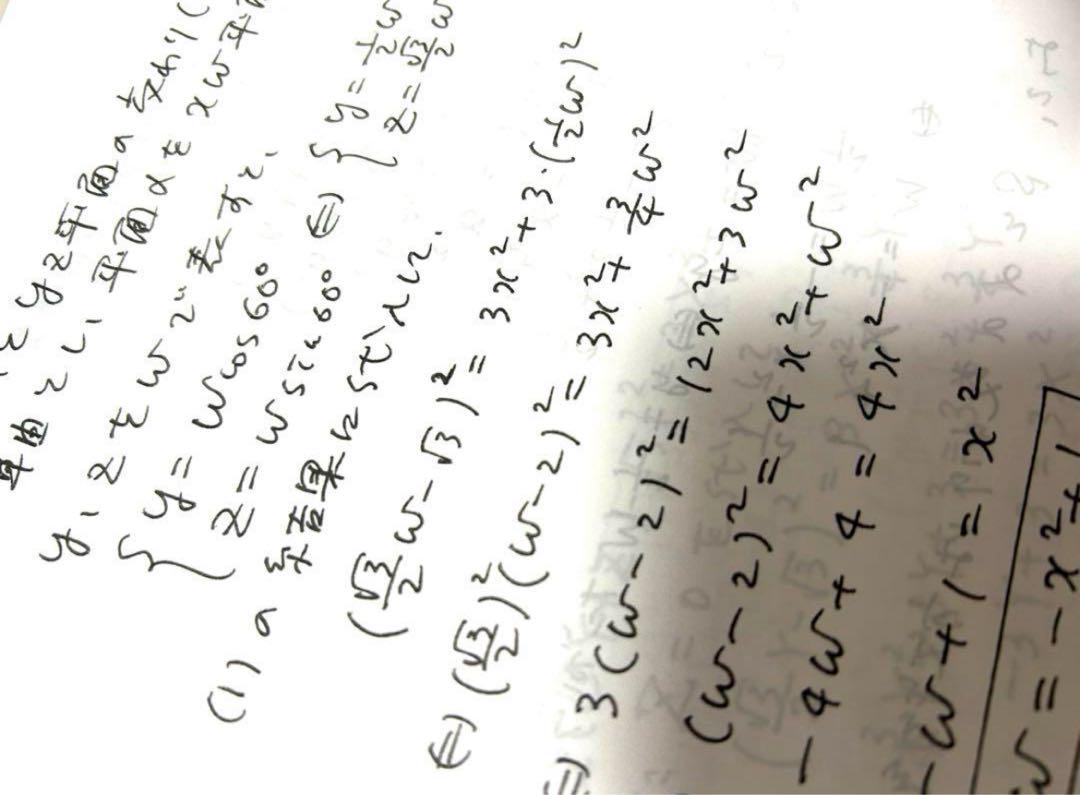 yz平面の交わり(
平面とし、平面αをxw平
y, zをwで表すと、
{ y = w cos 60°
z = w sin 60° ⇔ { y = 1/2 w
z = √3/2 w
(1)の結果に代入して、
(√3/2 w - √3)² = 3x² + 3·(1/2 w)²
⇔ (√3/2)²(w - 2)² = 3x² + 3/4 w²
3(w - 2)² = 12x² + 3w²
(w - 2)² = 4x² + w²
-4w + 4 = 4x²
-w + 1 = x²
w = -x² + 1